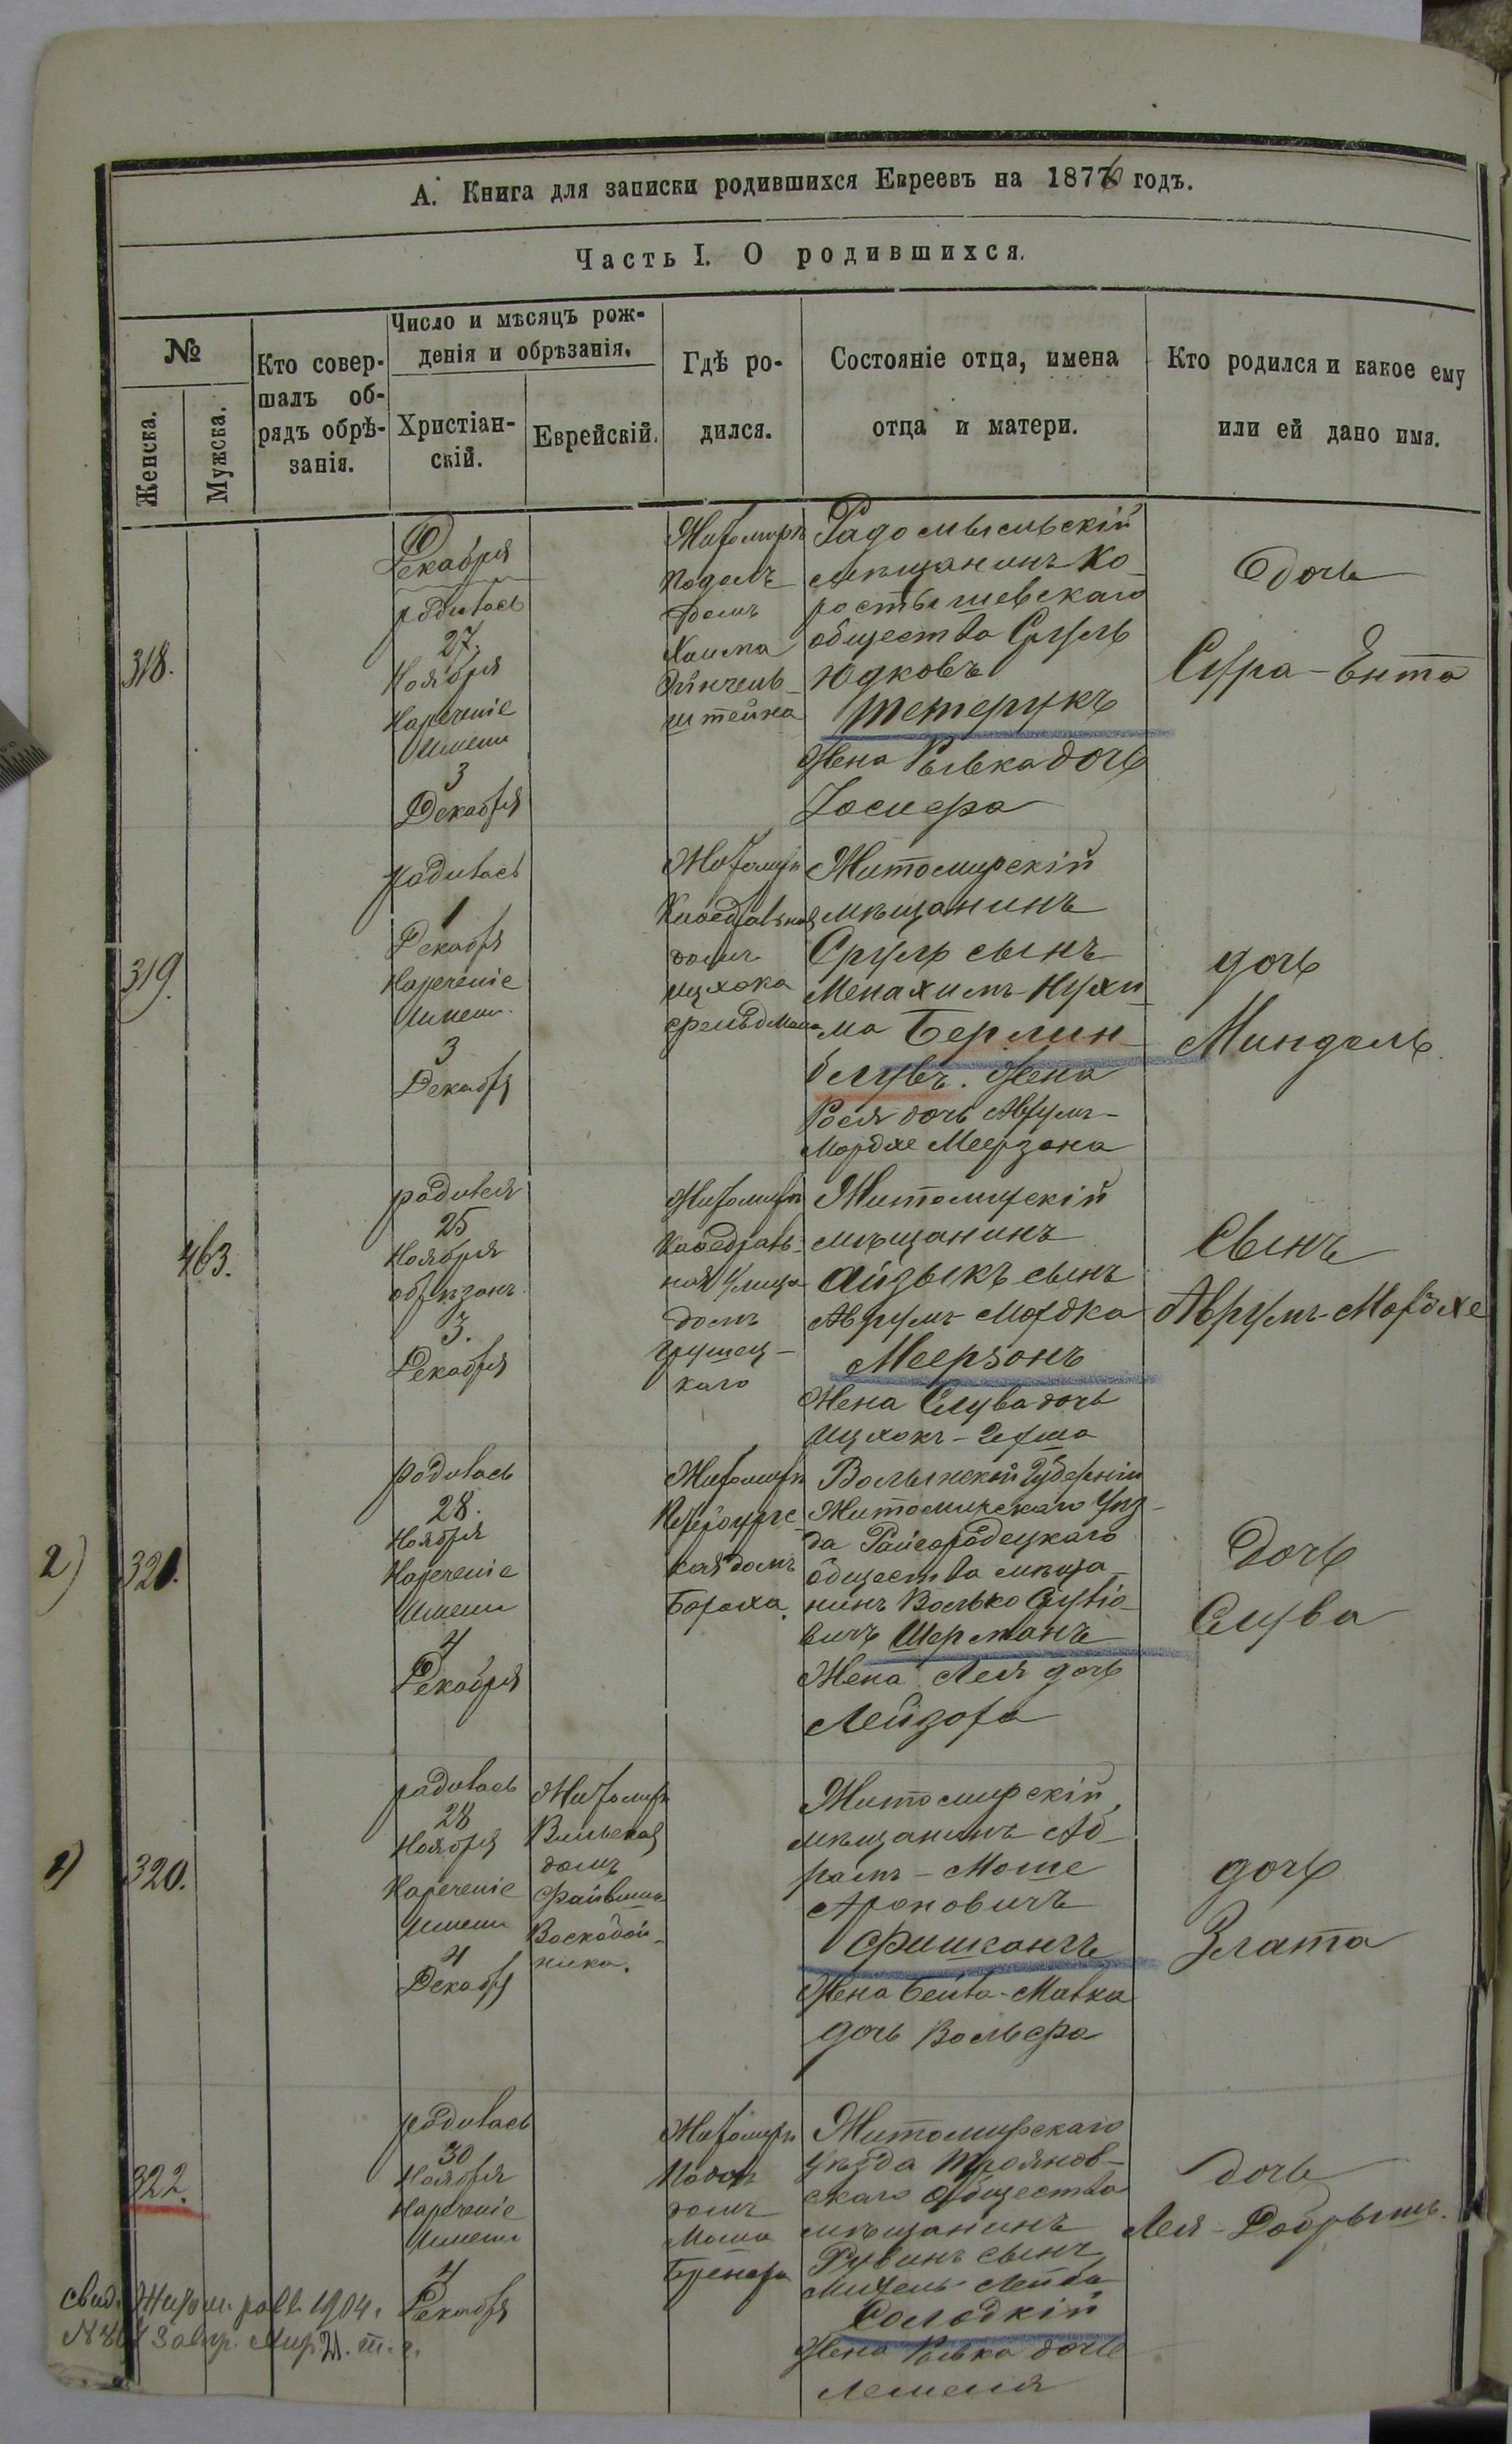 А. Книга для записки родившихся Евреевъ на 1876 годъ.
Часть I. О родившихся.
№
Женска.
Мужска.
Кто совер-
шалъ об-
рядъ обрѣ-
занія.
Число и мѣсяцъ рож-
денія и обрѣзанія.
Христіан-
скій.
Еврейскій.
Гдѣ ро-
дился.
Состояніе отца, имена
отца и матери.
Кто родился и какое ему
или ей дано имя.
318.
Декабря
родилась
27.
Ноября
Нареченіе
Имени
3
Декабря
Житомиръ
Подолъ
домъ
Хаима
штейна
Радомысльскій
мѣщанинъ Ко-
ростышевскаго
общества Сруль
Юдковъ
Тетерукъ
Жена Рывка дочь
Іосифа
дочь
Сура-Ента
319.
родилась
1
Декабря
Нареченіе
Имени
3
Декабря
Житомиръ
Кафедральная
домъ
Ицхока
Фрельдмана
Житомирскій
мѣщанинъ
Сруль сынъ
Менахимъ-Нухи-
ма Берлин-
блувъ. Жена
Рося дочь Аврумъ-
Мордхе Меерзона
дочь
Миндель
463.
родился
25
Ноября
обрѣзанъ
3.
Декабря
Житомиръ
Кафедраль-
ная улица
домъ
каго
Житомирскій
мѣщанинъ
Айзыкъ сынъ
Аврумъ-Мордка
Меерзонъ
Жена Слува дочь
Ицхокъ-Герша
Сынъ
Аврумъ-Мордхе
2)
321.
родилась
28.
Ноября
Нареченіе
Имени
4
Декабря
Житомиръ
Петербургс
кая домъ
Бороха.
Волынской Губерніи
Житомирскаго Уѣз-
да Райгородецкаго
общества мѣща-
нинъ Волько
вичъ Шерманъ
Жена Лея дочь
Лейзора
Дочь
Слува
1)
320.
родилась
28
Ноября
Нареченіе
Имени
4
Декабря
Житомиръ
Вильская
домъ
Файвиша
Воскобой-
ника.
Житомирскій
мѣщанинъ Аб-
рамъ-Моше
Ароновичъ
Фишманъ
Жена Бейла-Малка
дочь Вольфа
дочь
Злата
322.
родилась
30
Ноября
Нареченіе
Имени
4
Декабря
Житомиръ
Подолъ
домъ
Моша
Бренера
Житомирскаго
Уѣзда Троянов-
скаго общества
мѣщанинъ
Рувинъ сынъ
Михель Лейба
Солодкій
Жена Рывка дочь
дочь
Лея-Добрышъ.
свид. Житом. равв. 1904.